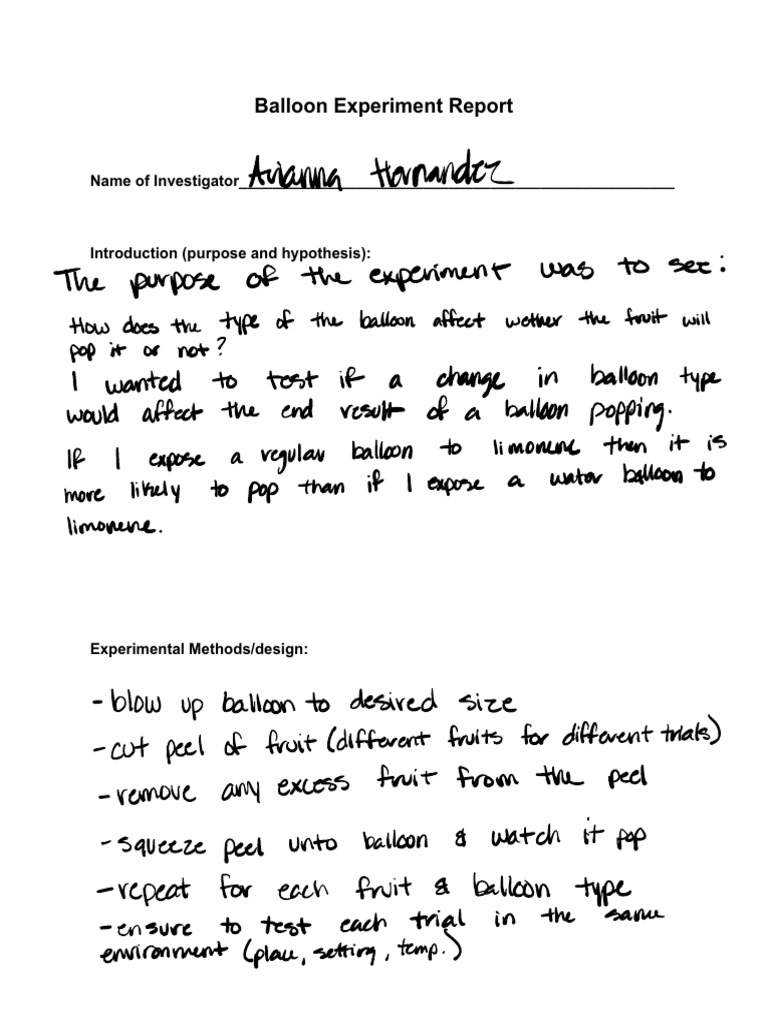 Balloon Experiment Report
Name of Investigator Arianna Hernandez
Introduction (purpose and hypothesis):
The purpose of the experiment was to see:
How does the type of the balloon affect wether the fruit will
pop it or not?
I wanted to test if a change in balloon type
would affect the end result of a balloon popping.
If I expose a regular balloon to limonene then it is
more likely to pop than if I expose a water balloon to
limonene.
Experimental Methods/design:
- blow up balloon to desired size
- cut peel of fruit (different fruits for different trials)
- remove any excess fruit from the peel
- squeeze peel unto balloon & watch it pop
- repeat for each fruit & balloon type
- ensure to test each trial in the same
environment (place, setting, temp.)